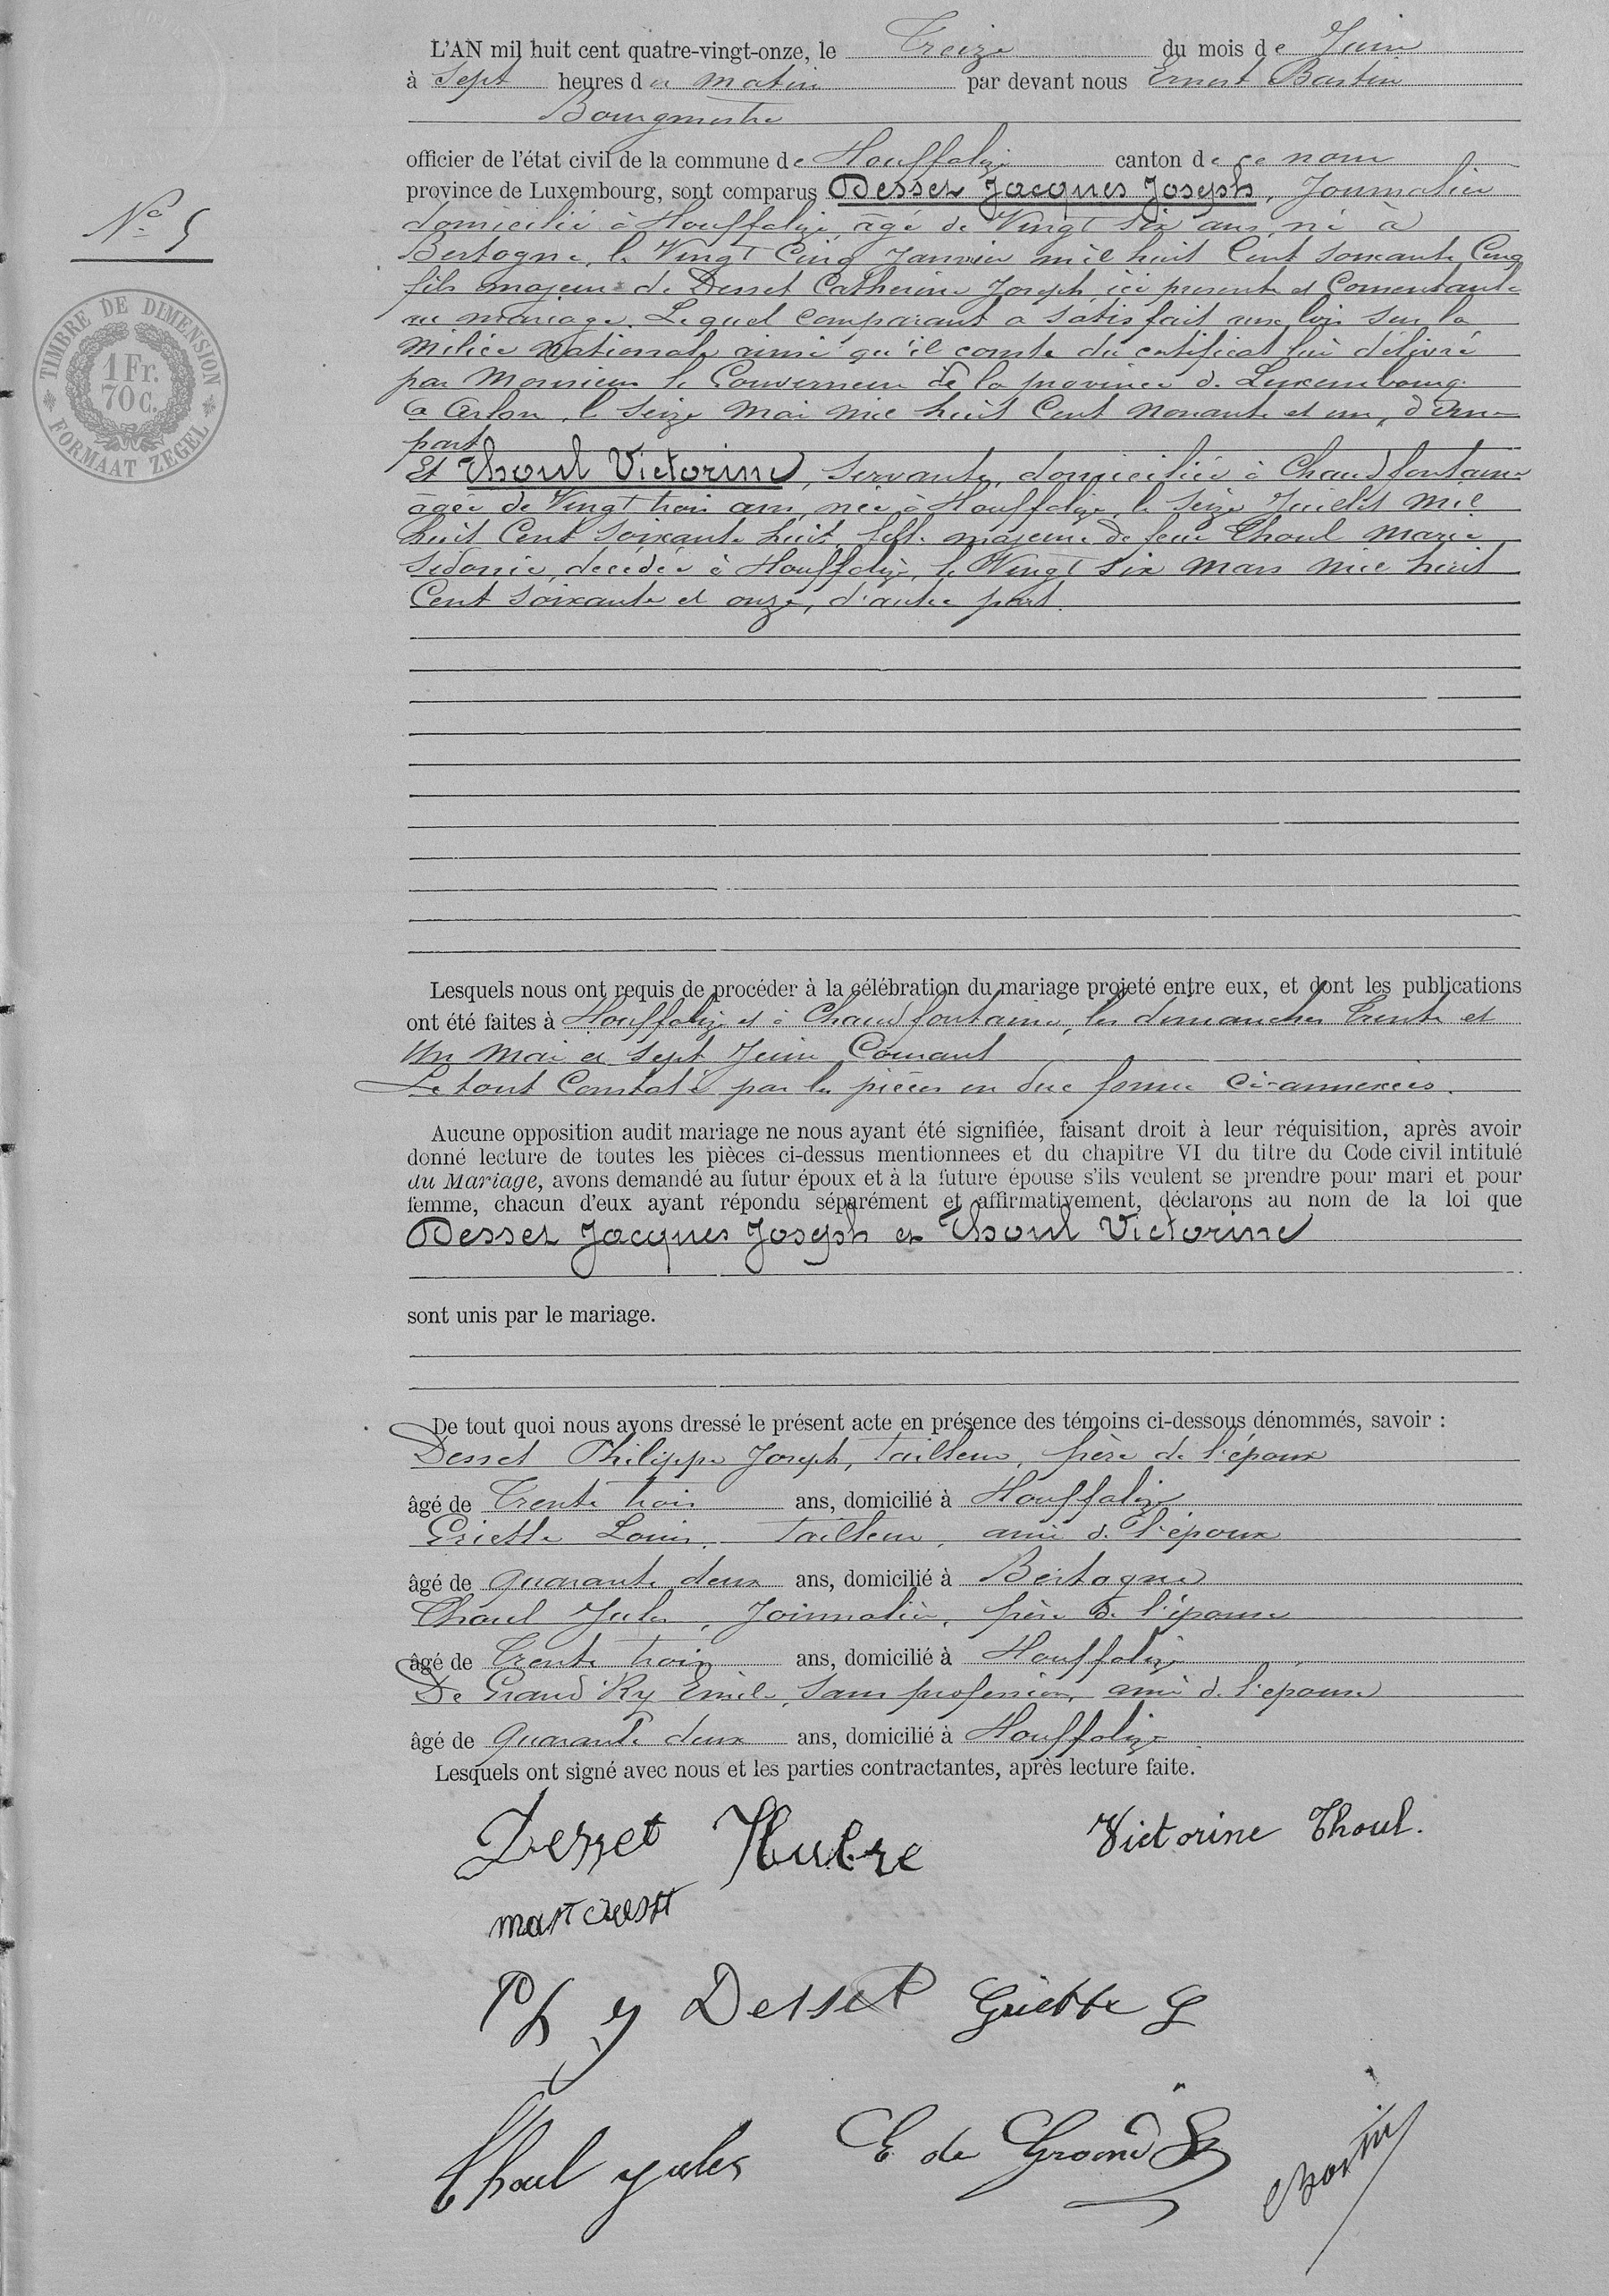 L'AN mil huit cent quatre-vingt-onze, le Treize du mois de Juin
à Sept heures du matin par devant nous Ernest Bastin
Bourgmestre
officier de l'état civil de la commune de Houffalize canton de ce nom
province de Luxembourg, sont comparus Desset Jacques Joseph, Journalier
N° 5
domicilié à Houffalize, âgé de Vingt six ans, né à
Bertogne, le Vingt Cinq Janvier mil huit Cent soixante Cinq
fils majeur de Desset Catherine Joseph, ici présente et Consentante
au mariage. Lequel comparant a satisfait aux lois sur la
TIMBRE DE DIMENSION
1 Fr.
70 c.
FORMAAT ZEGEL
Milice Nationale ainsi qu'il conste du certificat lui délivré
par Monsieur le Gouverneur de la province de Luxembourg
à Arlon, le Seize Mai mil huit Cent nonante et un, d'une
part
Et Thoul Victorine, Servante, domiciliée à Chaudfontaine
âgée de Vingt trois ans, née à Houffalize, le Seize Juillet mil
huit Cent soixante huit, fille majeure de feue Thoul Marie
Sidonie, décédée à Houffalize, le Vingt six Mars mil huit
Cent soixante et onze, d'autre part.
Lesquels nous ont requis de procéder à la célébration du mariage projeté entre eux, et dont les publications
ont été faites à Houffalize et à Chaudfontaine, les dimanches Trente et
Un Mai et Sept Juin Courant
Le tout Constaté par les pièces en due forme ci-annexées.
Aucune opposition audit mariage ne nous ayant été signifiée, faisant droit à leur réquisition, après avoir
donné lecture de toutes les pièces ci-dessus mentionnees et du chapitre VI du titre du Code civil intitulé
du Mariage, avons demandé au futur époux et à la future épouse s'ils veulent se prendre pour mari et pour
femme, chacun d'eux ayant répondu séparément et affirmativement, déclarons au nom de la loi que
Desset Jacques Joseph et Thoul Victorine
sont unis par le mariage.
De tout quoi nous avons dressé le présent acte en présence des témoins ci-dessous dénommés, savoir :
Desset Philippe Joseph, Tailleur, frère de l'époux
âgé de Trente trois ans, domicilié à Houffalize
Griette Louis, Tailleur, ami de l'époux
âgé de Quarante deux ans, domicilié à Bertogne
Thoul Jules, Journalier, frère de l'épouse
âgé de Trente trois ans, domicilié à Houffalize
De Grand Ry Emile, Sans profession, ami de l'épouse
âgé de Quarante deux ans, domicilié à Houffalize
Lesquels ont signé avec nous et les parties contractantes, après lecture faite.
Desset Victorine Thoul.
Ph J Desset Griette
Thoul jules E de Grand Ry Bastin